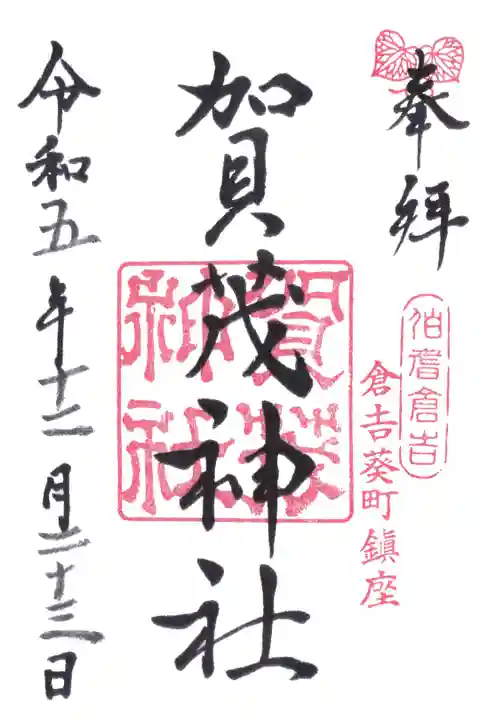 奉拝
伯耆倉吉
倉吉葵町鎮座
賀茂神社
賀茂
神社
令和五年十二月二十三日